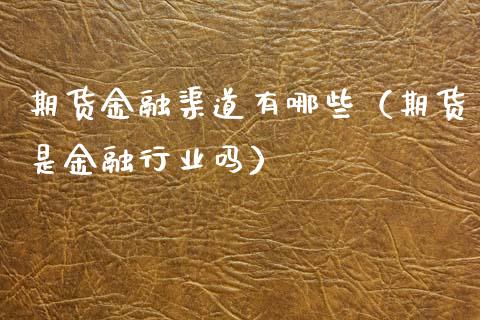 期货金融渠道有哪些（期货
是金融行业吗）